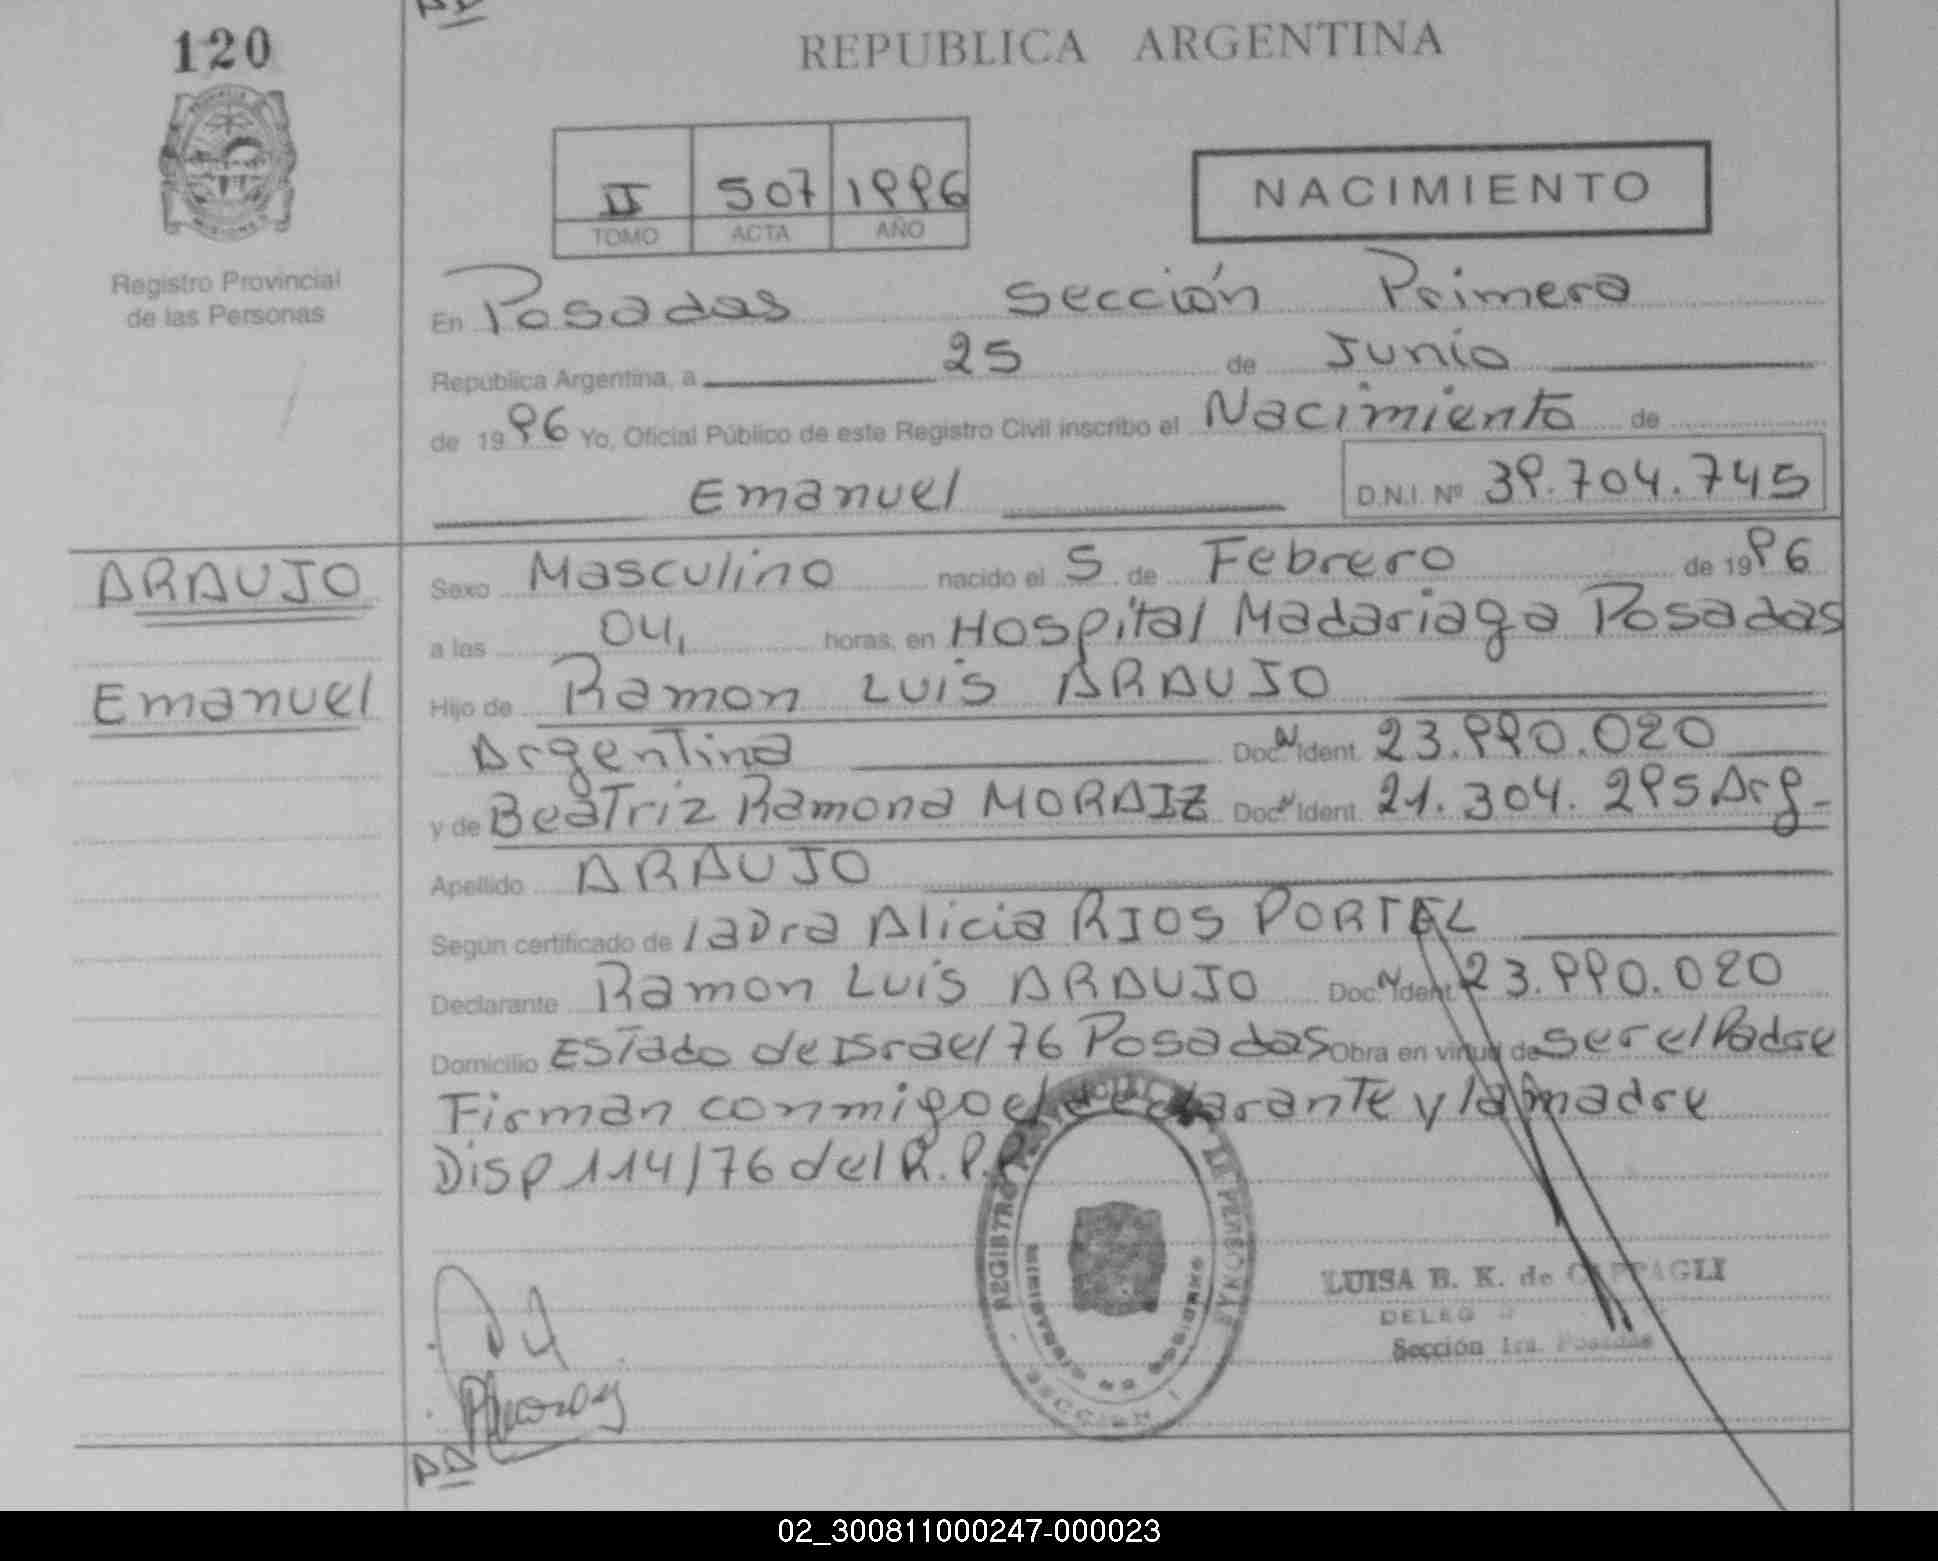 120
REPUBLICA ARGENTINA
II 507 1996
TOMO ACTA AÑO
NACIMIENTO
Registro Provincial
de las Personas
En Posadas sección Primera
República Argentina, a 25 de Junio
de 1996 Yo, Oficial Público de este Registro Civil inscribo el Nacimiento de
Emanuel D.N.I. Nº 39.704.745
ARAUJO
Emanuel
Sexo Masculino nacido el 5 de Febrero de 1996
a las 04, horas, en Hospital Madariaga Posadas
Hijo de Ramon Luis ARAUJO
Argentina Doc. N Ident. 23.990.020
y de Beatriz Ramona MORAIZ Doc. N Ident. 21.304.295 Arg-
Apellido ARAUJO
Según certificado de la Dra Alicia RIOS PORTEL
Declarante Ramon Luis ARAUJO Doc. N Ident. 23.990.020
Domicilio Estado de Israel 76 Posadas Obra en virtud de ser el Padre
Firman conmigo el declarante y la madre
Disp 114/76 del R.P.P
REGISTRO DE LAS PERSONAS
MINISTERIO DE GOBIERNO
SECCION 1
LUISA B. K. de CAPPAGLI
DELEG
Sección 1ra. Posadas
02_300811000247-000023